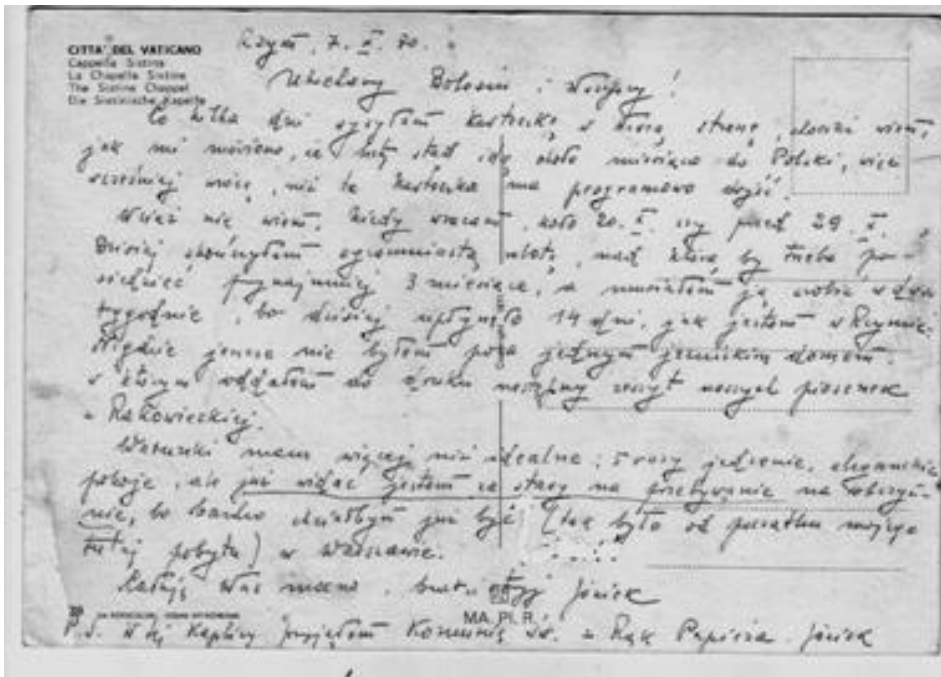 CITTA' DEL VATICANO
Cappella Sistina
La Chapelle Sixtine
The Sistine Chapel
Die Sixtinische Kapelle
Rzym, 7. X. 70.
Ukochany i !
Co kilka dni karteczkę w stronę, chociaż wiem,
jak mi mówiono, że stąd idą około miesiąca do Polski, więc
wcześniej wrócę, niż ta karteczka ma programowo dojść.
Wciąż nie wiem, kiedy wracam, koło 20. X. czy przed 29. X.
Dzisiaj skończyłem ogromniastą robotę, nad którą by trzeba po-
siedzieć przynajmniej 3 miesiące, a musiałem ją zrobić w dwa
tygodnie, bo dzisiaj upłynęło 14 dni, jak jestem w Rzymie.
Nigdzie jeszcze nie byłem poza jednym domem,
w którym oddałem do druku zeszyt naszych piosenek
z Rakowieckiej.
Warunki mam więcej niż idealne: 5 razy jedzenie, eleganckie
pokoje, ale już widać jestem za stary na przebywanie na obczyź-
nie, bo bardzo chciałbym już być (tak było od początku mojego
tutaj pobytu) w Warszawie.
Całuję Was mocno, Jónick
MA. PI. R.
P.S. W tej Kaplicy przyjąłem Komunię św. z Rąk Papieża. Jónick